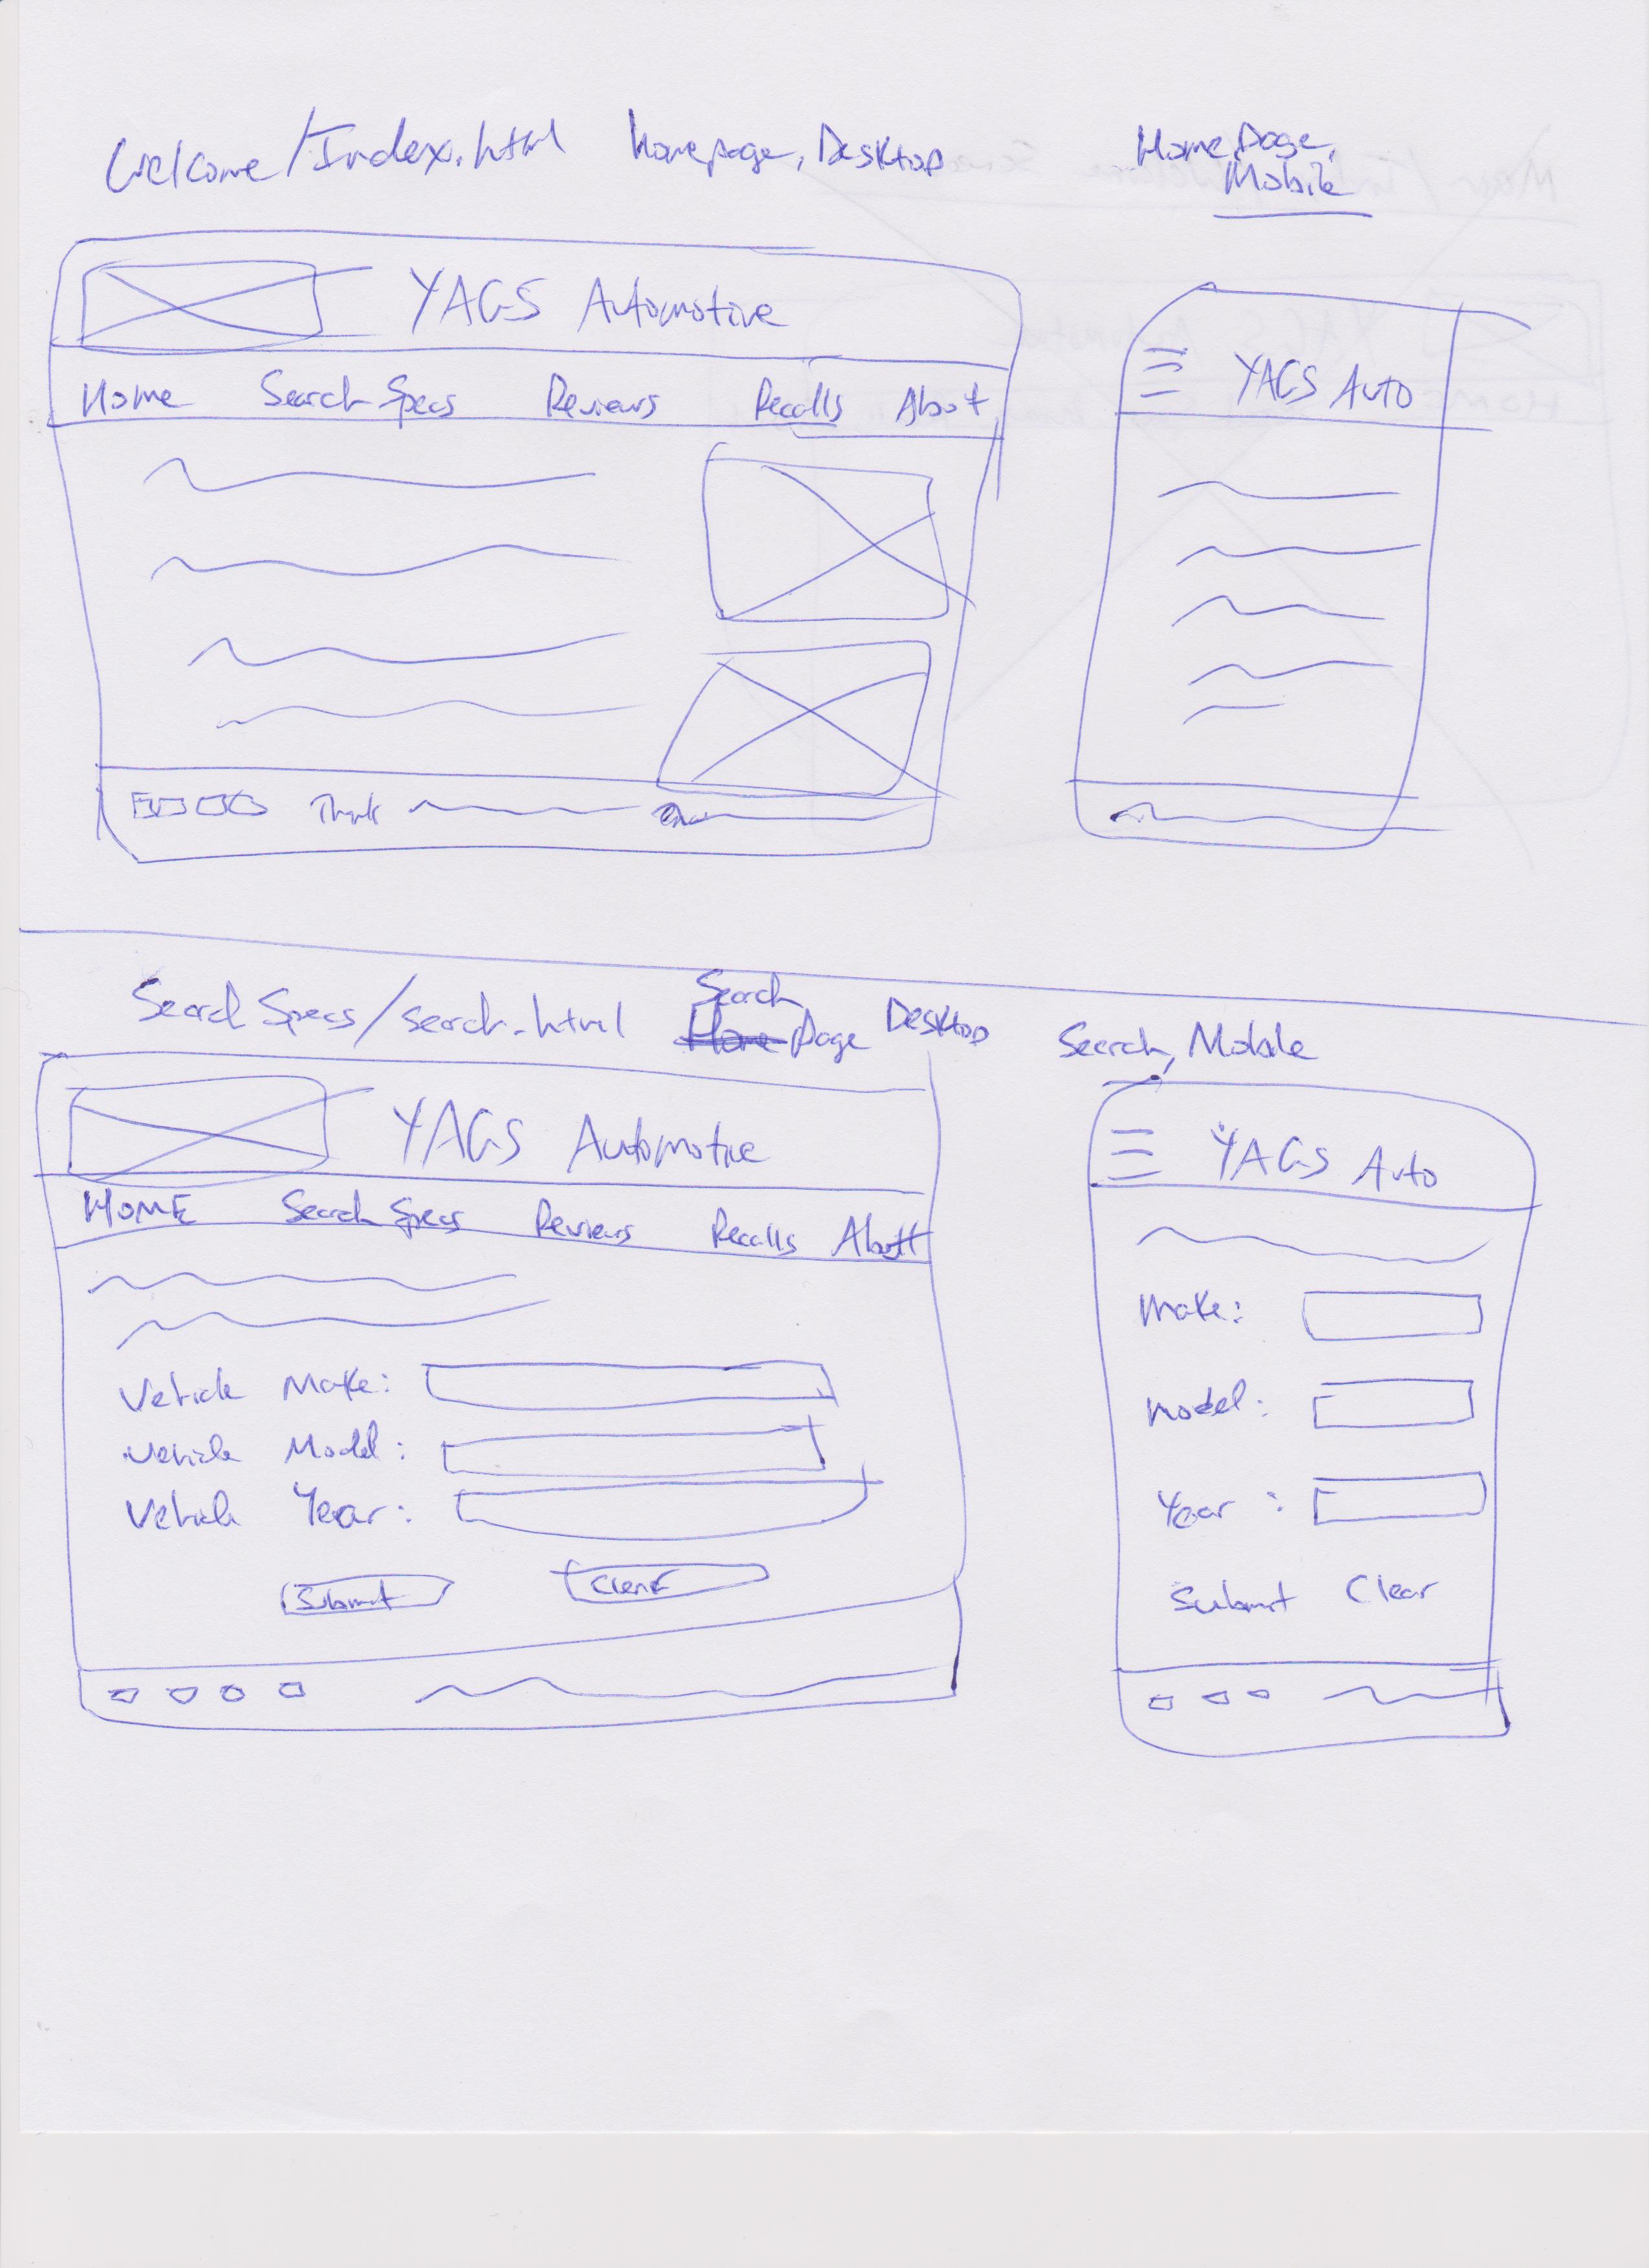 Welcome/Index.html homepage, Desktop
HomePage,
Mobile
YAGS Automotive
Home Search Specs Reviews Recalls About
Thank
YAGS Auto
Search Specs/search.html Search
Home page Desktop
Search, Mobile
YAGS Automotive
HOME Search Specs Reviews Recalls About
Vehicle Make:
Vehicle Model:
Vehicle Year:
Submit Clear
YAGS Auto
Make:
Model:
Year :
Submit Clear